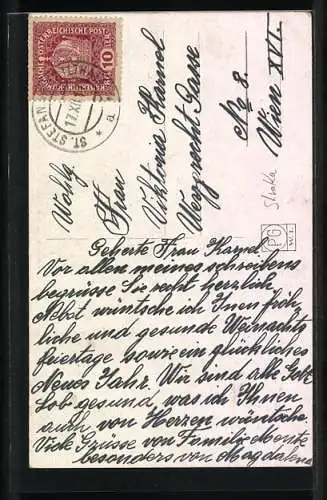 KAISERLICHE KÖNIGLICHE ÖSTERREICHISCHE POST
10 HELLER
ST. STEFAN
17.XII
* a
Wohlg
Frau
Viktoria Hamel
Weyprecht Gasse
No 8.
Wien XVI.
Straka
PG
W.I.
Geherte Frau Hamel
Vor allen meines schreibens
begrüsse Sie recht herzlich
Nebst wünsche ich Inen fröh
liche und gesunde Weinachts
feiertage sowie ein glückliches
Neues Jahr. Wir sind alle Gott
Lob gesund was ich Ihnen
auch von Herzen wünsche.
Viele Grüsse von Familie
besonders von Magdalena